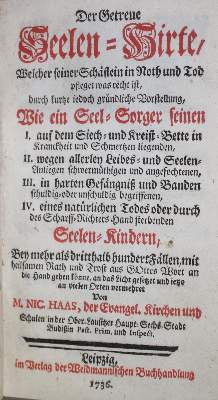 Der Getreue
Seelen-Hirte,
Welcher seiner Schäflein in Noth und Tod
pfleget was recht ist,
durch kurtze iedoch gründliche Vorstellung,
Wie ein Seel-Sorger seinen
I. auf dem Siech- und Kreist-Bette in
Kranckheit und Schmertzen liegenden,
II. wegen allerley Leibes- und Seelen-
Anliegen schwermüthigen und angefochtenen,
III. in harten Gefängniß und Banden
schuldig- oder unschuldig begriffenen,
IV. eines natürlichen Todes oder durch
des Scharff-Richters Hand sterbenden
Seelen-Kindern,
Bey mehr als dritthalb hundert Fällen, mit
heilsamen Rath und Trost aus GOttes Wort an
die Hand gehen könne, an das Licht gesetzt und ietzo
an vielen Orten vermehret
Von
M. NIC. HAAS, der Evangel. Kirchen und
Schulen in der Ober-Lausitzer Haupt-Sechs-Stadt
Budißin Past. Prim. und Inspect.
Leipzig,
im Verlag der Weidmannischen Buchhandlung
1736.